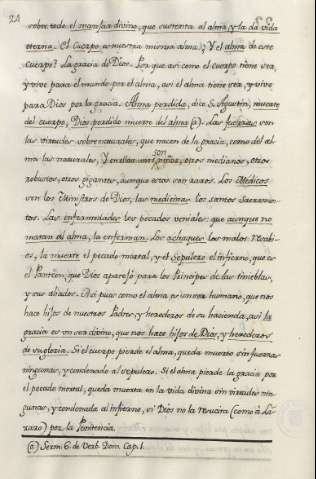 24
sobre todo el manjar divino, que sustenta al alma, y la da vida
eterna. El Cuerpo es nuestra misma alma. ¿Y el alma de este
cuerpo? La gracia de Dios. Porque asi como el cuerpo tiene vida,
y vive para el mundo por el alma, asi el alma tiene vida, y vive
para Dios por la gracia. Alma perdida, dice S. Agustin, muerte
del cuerpo, Dios perdido muerte del alma (a). Las fuerzas son
las virtudes sobrenaturales, que nacen de la gracia, como del al-
ma las naturales, Y en ellas son unos niños, otros medianos, otros
robustos, otros gigantes, aunque estos son raros. Los Medicos
son los Ministros de Dios, las medicinas los santos Sacramen-
tos. Las enfermedades los pecados veniales: que aunque no
matan el alma, la enferman. Los achaques los malos
la muerte el pecado mortal, y el sepulcro el infierno, que es
el Panteon, que Dios aparejó para los Principes de las tinieblas,
y sus aliados. Asi pues como el alma es un ser humano, que nos
hace hijos de nuestros Padres, y herederos de su hacienda, asi la
gracia es un ser divino, que nos hace hijos de Dios, y herederos
de su gloria. Si el cuerpo pierde el alma, queda muerto sin fuerzas
ningunas, y condenado al sepulcro. Si el alma pierde la gracia por
el pecado mortal, queda muerta en la vida divina sin virtudes nin-
gunas, y condenada al infierno, si Dios no la resucita (como á La-
zaro) por la Penitencia.
(a) Serm. 6. de Verb. Dom. Cap. 1.